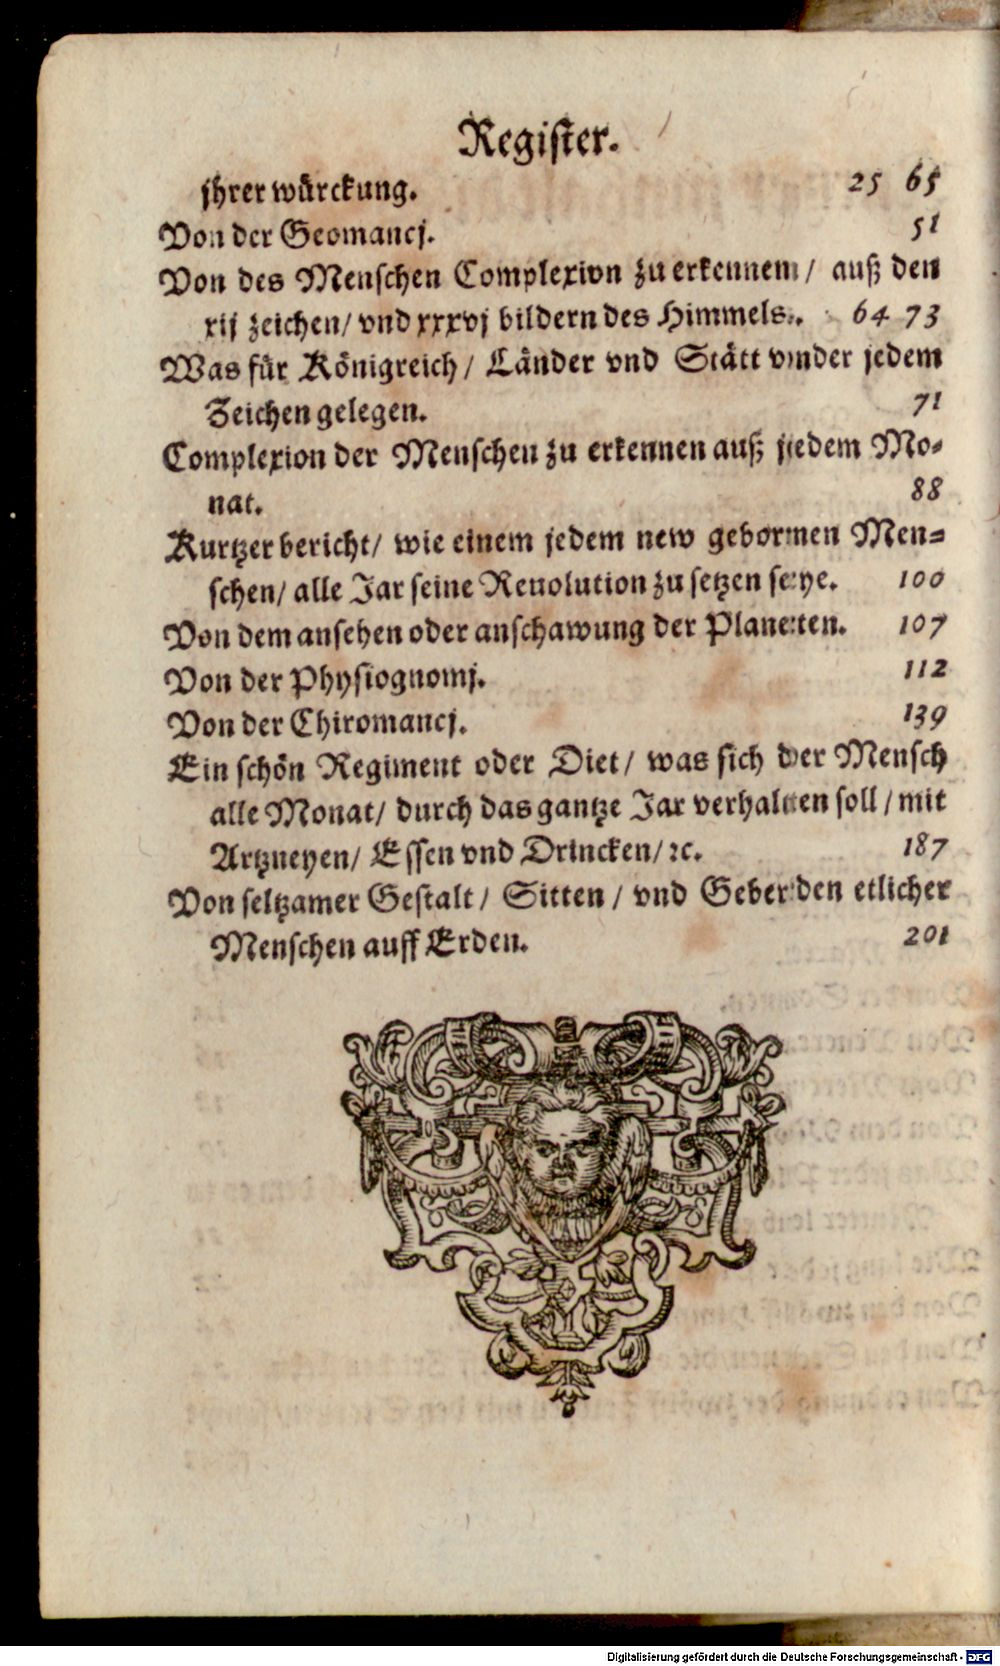 Register.
jhrer würckung. 25 65
Von der Geomancj. 51
Von des Menschen Complexion zu erkennen / auß den
xij zeichen / vnd xxxvj bildern des Himmels. 64 73
Was für Königreich / Länder vnd Stätt vnder jedem
Zeichen gelegen. 71
Complexion der Menschen zu erkennen auß jedem Mo-
nat. 88
Kurtzer bericht / wie einem jedem new gebornen Men-
schen / alle Jar seine Reuolution zu setzen seye. 100
Von dem ansehen oder anschawung der Planeten. 107
Von der Physiognomj. 112
Von der Chiromancj. 139
Ein schön Regiment oder Diet / was sich der Mensch
alle Monat / durch das gantze Jar verhalten soll / mit
Artzneyen / Essen vnd Drincken / ꝛc. 187
Von seltzamer Gestalt / Sitten / vnd Geberden etlicher
Menschen auff Erden. 201
Digitalisierung gefördert durch die Deutsche Forschungsgemeinschaft - DFG